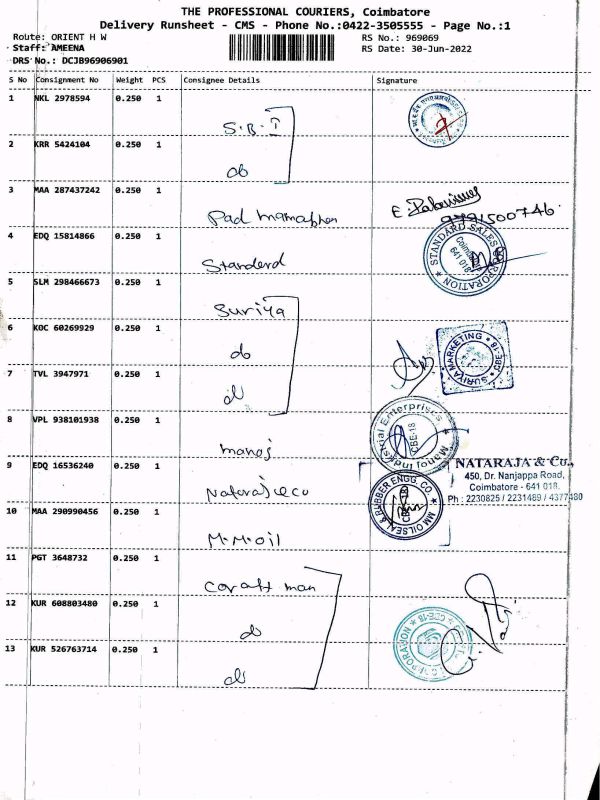 THE PROFESSIONAL COURIERS, Coimbatore
Delivery Runsheet - CMS - Phone No.:0422-3505555 - Page No.:1
Route: ORIENT H W
RS No.: 969069
Staff: AMEENA
RS Date: 30-Jun-2022
DRS No.: DCJB96906901
S No Consignment No Weight PCS Consignee Details Signature
1 NKL 2978594 0.250 1
S.B.I
2 KRR 5424104 0.250 1
do
3 MAA 287437242 0.250 1
9791500746
4 EDQ 15814866 0.250 1
Standerd
STANDARD SALES CORPORATION
Coimbatore
641 018
5 SLM 298466673 0.250 1
Suriya
6 KOC 60269929 0.250 1
do
SURIYA MARKETING CBE-18
7 TVL 3947971 0.250 1
do
8 VPL 938101938 0.250 1
manoj
Manoj Industrial Enterprises
CBE-18
9 EDQ 16536240 0.250 1
Nataraj & co
NATARAJA & Co.,
450, Dr. Nanjappa Road,
Coimbatore - 641 018.
Ph : 2230825 / 2231489 / 4377480
10 MAA 290990456 0.250 1
M.M.oil
MM OILSEAL & RUBBER ENGG. CO.
CBE-18
11 PGT 3648732 0.250 1
12 KUR 608803480 0.250 1
do
CORPORATION CBE-18
13 KUR 526763714 0.250 1
do